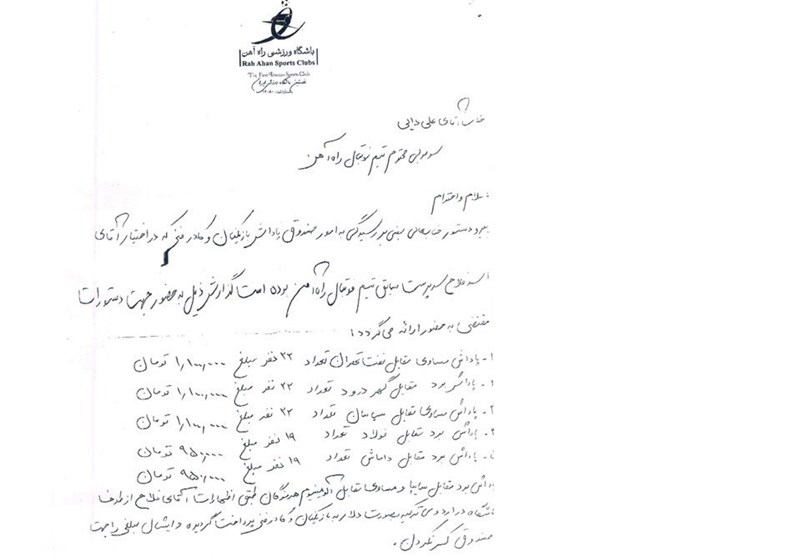 باشگاه ورزشی راه آهن
Rah Ahan Sports Clubs
The First Iranian Sports Club
نخستین باشگاه ورزشی ایران
جناب آقای علی دایی
سرمربی محترم تیم فوتبال راه آهن
سلام و احترام
دستور جنابعالی مبنی بر رسیدگی به امور صندوق پاداش بازیکنان و کادر فنی که در اختیار آقای
فلاح سرپرست سابق تیم فوتبال راه آهن بوده است گزارش ذیل به حضور جهت دستورات
مقتضی به حضور ارائه می‌گردد:
۱- پاداش مساوی مقابل نفت تهران تعداد ۲۲ نفر مبلغ ۱,۱۰۰,۰۰۰ تومان
پاداش برد مقابل گهر درود تعداد ۲۲ نفر مبلغ ۱,۱۰۰,۰۰۰ تومان
پاداش مساوی مقابل سپاهان تعداد ۲۲ نفر مبلغ ۱,۱۰۰,۰۰۰ تومان
پاداش برد مقابل فولاد تعداد ۱۹ نفر مبلغ ۹۵۰,۰۰۰ تومان
پاداش برد مقابل داماش تعداد ۱۹ نفر مبلغ ۹۵۰,۰۰۰ تومان
پاداش برد مقابل سایپا و مساوی مقابل آلومینیوم هرمزگان طبق اظهارات آقای فلاح از طرف
باشگاه در اردوی ترکیه بصورت دلار به بازیکنان و کادر فنی پرداخت گردیده و ایشان مبلغی را جهت
صندوق کسر نکردن.